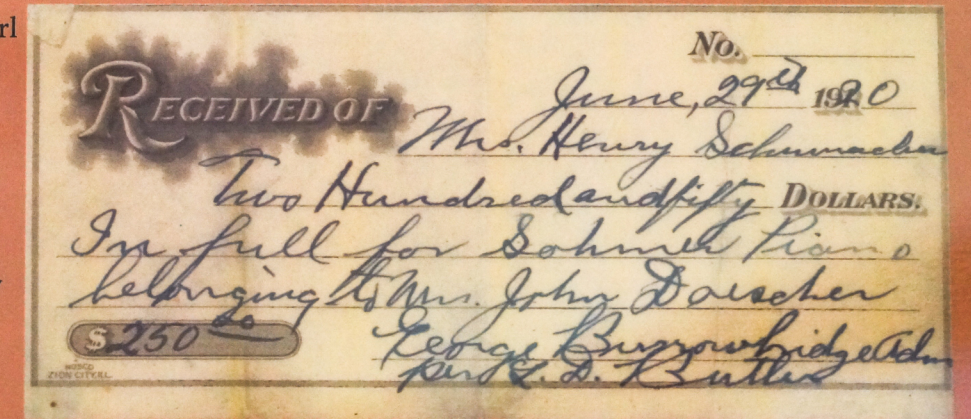 rl
No.
June, 29th 1920
RECEIVED OF Mrs. Henry Schumacher
Two Hundred and fifty DOLLARS.
In full for Sohmer Piano
belonging to Mrs. John Doescher
$ 250 00
George Burrowbridge Adm
per L. D. Butler
ZION CITY ILL.